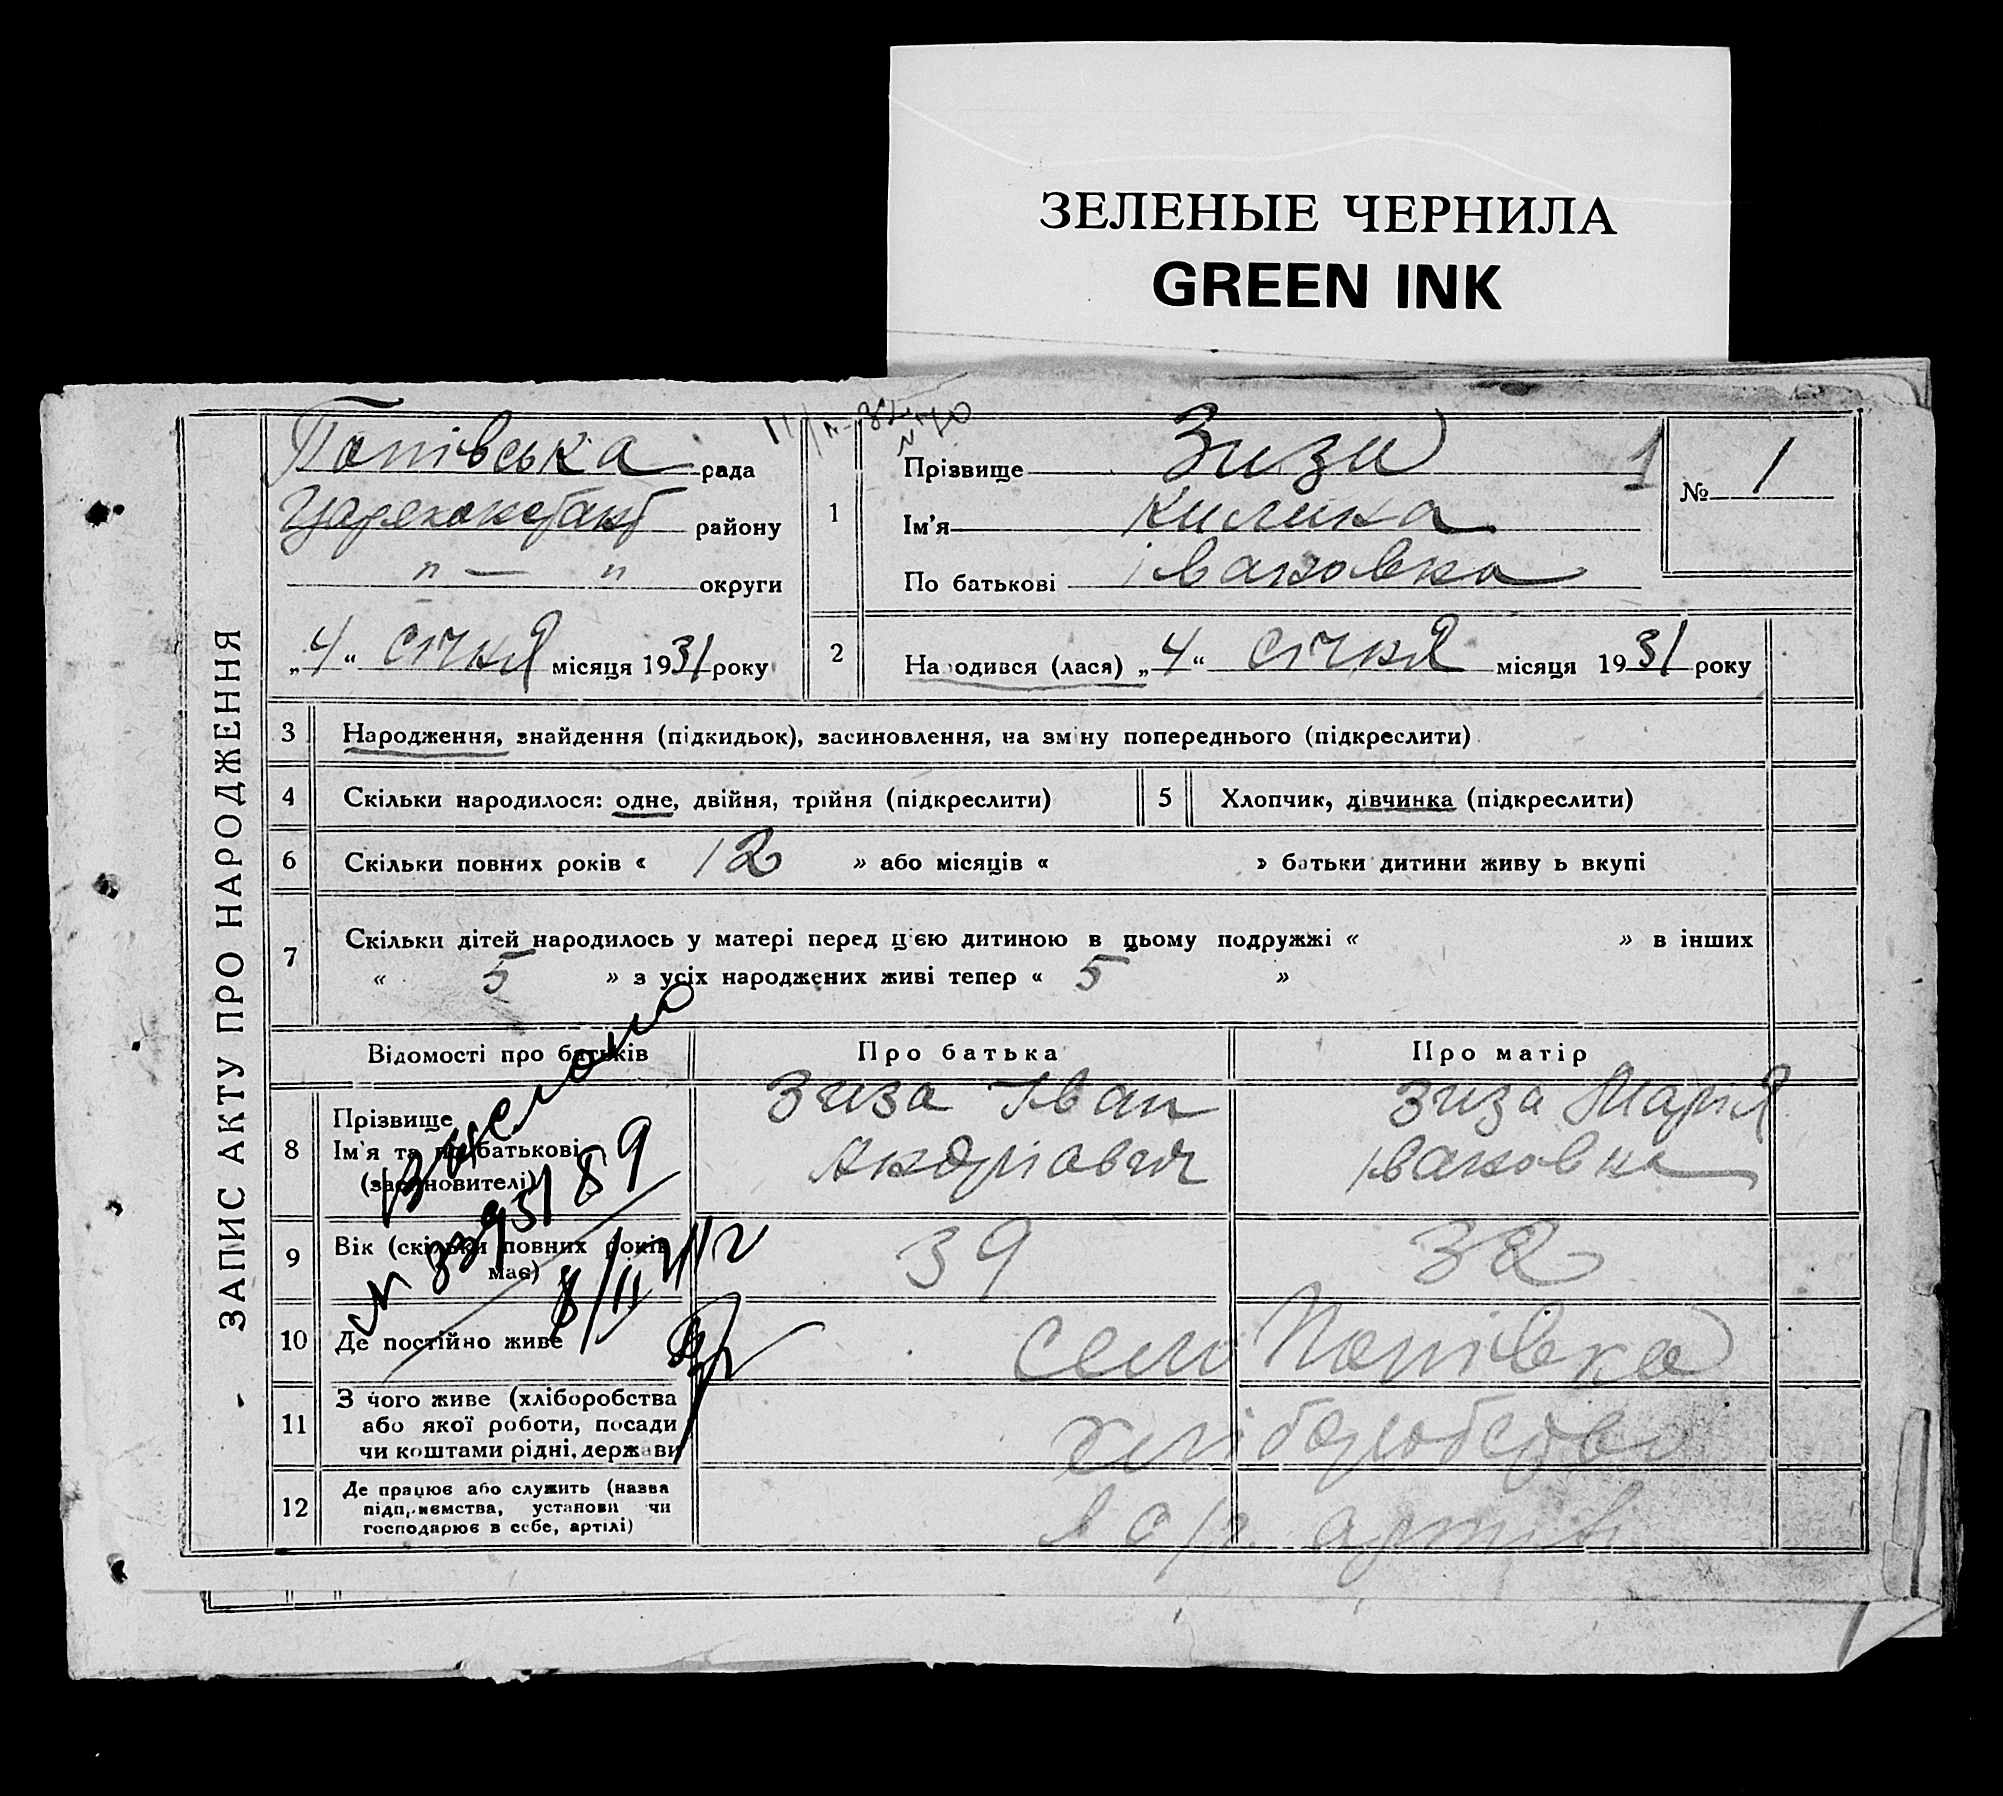 ЗЕЛЕНЫЕ ЧЕРНИЛА
GREEN INK
ЗАПИС АКТУ ПРО НАРОДЖЕННЯ
Попівська рада
району
" — " округи
„4“ січня місяця 1931 року
1
Прізвище Зиза 1
Ім'я
По батькові Івановна
№ 1
2
Народився (лася) „4“ січня місяця 1931 року
3 Народження, знайдення (підкидьок), засиновлення, на зміну попереднього (підкреслити)
4 Скільки народилося: одне, двійня, трійня (підкреслити)
5 Хлопчик, дівчинка (підкреслити)
6 Скільки повних років « 12 » або місяців « » батьки дитини живуть вкупі
7 Скільки дітей народилось у матері перед цією дитиною в цьому подружжі « » в інших
« 5 » з усіх народжених живі тепер « 5 »
Відомості про батьків
Про батька
Про матір
8 Прізвище
Ім'я та по батькові
(засиновителі)
Зиза Іван
Андріович
Зиза Марія
Івановна
9 Вік (скільки повних років
має)
39
32
10 Де постійно живе
село Попівка
11 З чого живе (хліборобства
або якої роботи, посади
чи коштами рідні, держави
хліборобство
12 Де працює або служить (назва
підприємства, установи чи
господарює в себе, артілі)
в с/г. артілі